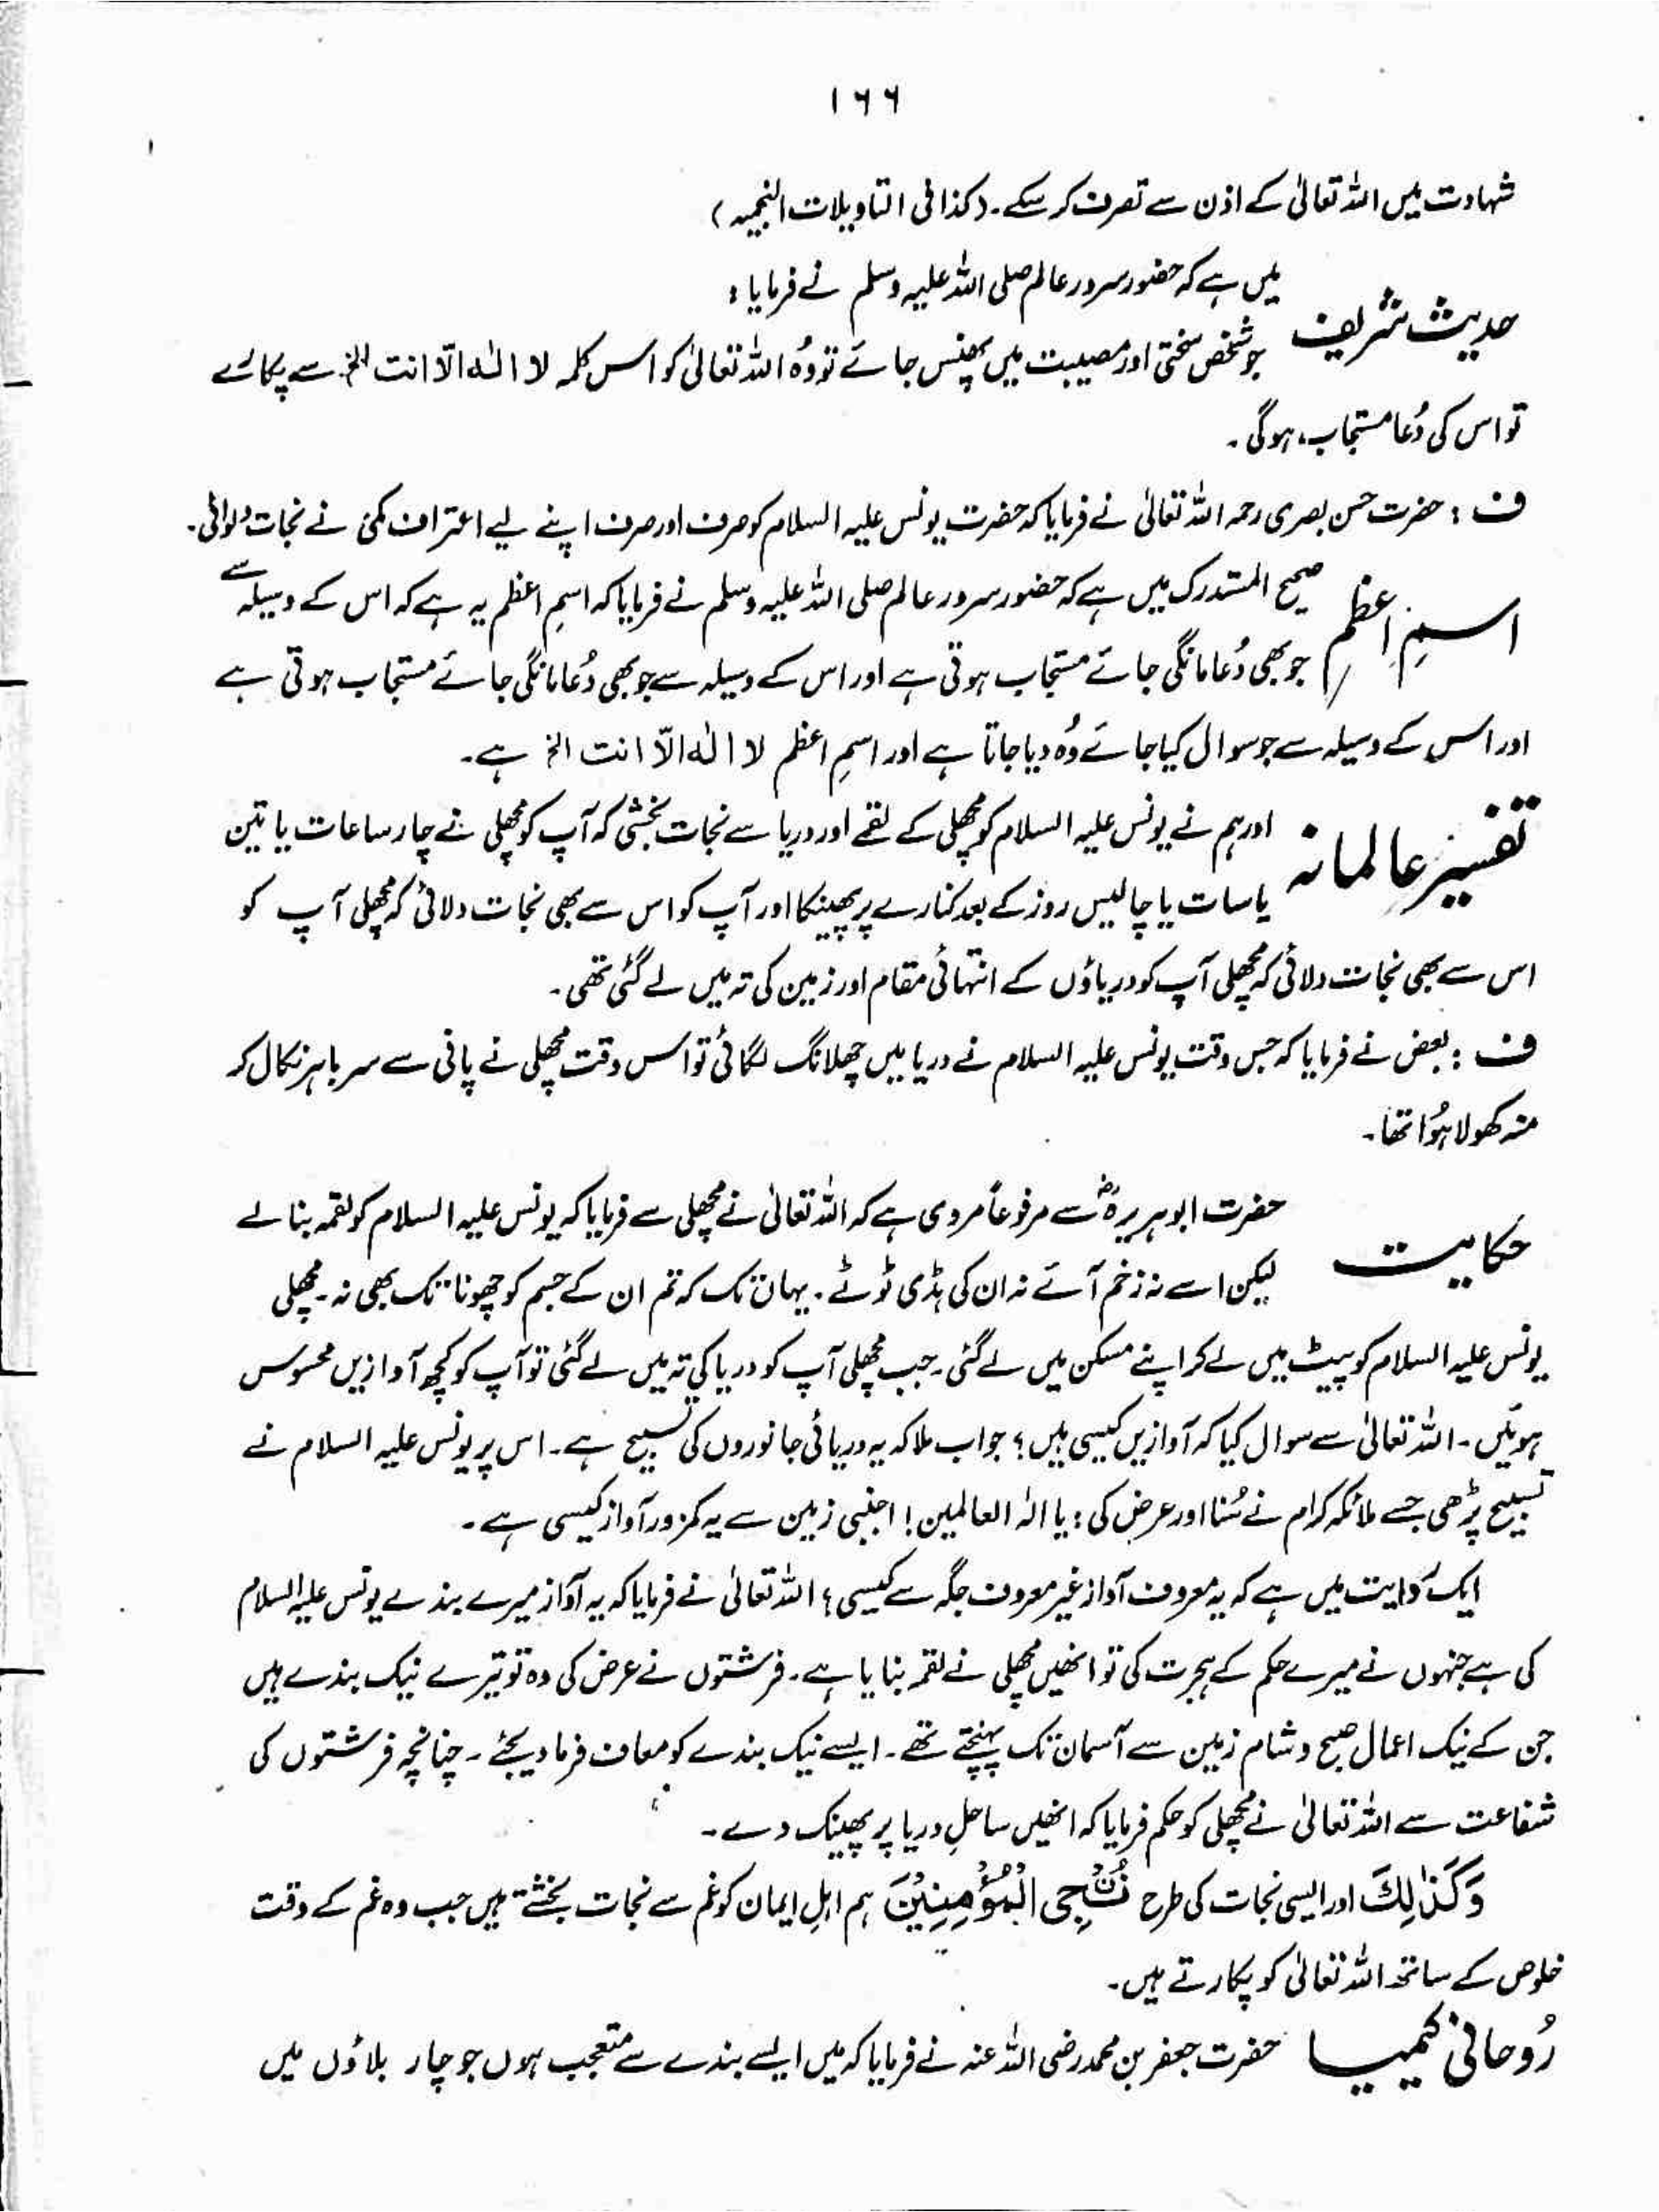 ۱۶۶
شہادت میں اللہ تعالیٰ کے اذن سے تصرف کرسکے۔ (کذافی التاویلات النجمیہ)
میں ہے کہ حضور سرور عالم صلی اللہ علیہ وسلم نے فرمایا:
حدیث شریف
جو شخص سختی اور مصیبت میں پھنس جائے تو وُہ اللہ تعالیٰ کو اس کلمہ لا الٰہ الّا انت الخ سے پکارے
تو اس کی دُعا مستجاب ہوگی۔
ف : حضرت حسن بصری رحمہ اللہ تعالیٰ نے فرمایا کہ حضرت یونس علیہ السلام کو صرف اور صرف اپنے لیے اعتراف کمی نے نجات دلوائی۔
صحیح المستدرک میں ہے کہ حضور سرور عالم صلی اللہ علیہ وسلم نے فرمایا کہ اسمِ اعظم یہ ہے کہ اس کے وسیلہ سے
اسمِ اعظم
جو بھی دُعا مانگی جائے مستجاب ہوتی ہے اور اس کے وسیلہ سے جو بھی دُعا مانگی جائے مستجاب ہوتی ہے
اور اس کے وسیلہ سے جو سوال کیا جائے وُہ دیا جاتا ہے اور اسمِ اعظم لا الٰہ الّا انت الخ ہے۔
اور ہم نے یونس علیہ السلام کو مچھلی کے لقمے اور دریا سے نجات بخشی کہ آپ کو مچھلی نے چار ساعات یا تین
تفسیرِ عالمانہ
یا سات یا چالیس روز کے بعد کنارے پر پھینکا اور آپ کو اس سے بھی نجات دلائی کہ مچھلی آپ کو
اس سے بھی نجات دلائی کہ مچھلی آپ کو دریاؤں کے انتہائی مقام اور زمین کی تہ میں لے گئی تھی۔
ف : بعض نے فرمایا کہ جس وقت یونس علیہ السلام نے دریا میں چھلانگ لگائی تو اس وقت مچھلی نے پانی سے سر باہر نکال کر
منہ کھولا ہُوا تھا۔
حضرت ابوہریرہؓ سے مرفوعاً مروی ہے کہ اللہ تعالیٰ نے مچھلی سے فرمایا کہ یونس علیہ السلام کو لقمہ بنا لے
حکایت
لیکن اسے نہ زخم آئے نہ ان کی ہڈی ٹوٹے۔ یہاں تک کہ تم ان کے جسم کو چھونا تک بھی نہ۔ مچھلی
یونس علیہ السلام کو پیٹ میں لے کر اپنے مسکن میں لے گئی۔ جب مچھلی آپ کو دریا کی تہ میں لے گئی تو آپ کو کچھ آوازیں محسوس
ہوئیں۔ اللہ تعالیٰ سے سوال کیا کہ آوازیں کیسی ہیں؟ جواب ملا کہ یہ دریائی جانوروں کی تسبیح ہے۔ اس پر یونس علیہ السلام نے
تسبیح پڑھی جسے ملائکہ کرام نے سُنا اور عرض کی : یا الٰہ العالمین! اجنبی زمین سے یہ کمزور آواز کیسی ہے۔
ایک روایت میں ہے کہ یہ معروف آواز غیر معروف جگہ سے کیسی؟ اللہ تعالیٰ نے فرمایا کہ یہ آواز میرے بندے یونس علیہ السلام
کی ہے جنہوں نے میرے حکم کے ہجرت کی تو انھیں مچھلی نے لقمہ بنایا ہے۔ فرشتوں نے عرض کی وہ تو تیرے نیک بندے ہیں
جن کے نیک اعمال صبح و شام زمین سے آسمان تک پہنچتے تھے۔ ایسے نیک بندے کو معاف فرما دیجئے۔ چنانچہ فرشتوں کی
شفاعت سے اللہ تعالیٰ نے مچھلی کو حکم فرمایا کہ انھیں ساحلِ دریا پر پھینک دے۔
وَكَذٰلِكَ اور ایسی نجات کی طرح نُـنْجِی الْمُؤْمِنِيْنَ ہم اہلِ ایمان کو غم سے نجات بخشتے ہیں جب وہ غم کے وقت
خلوص کے ساتھ اللہ تعالیٰ کو پکارتے ہیں۔
رُوحانی کیمیا حضرت جعفر بن محمد رضی اللہ عنہ نے فرمایا کہ میں ایسے بندے سے متعجب ہوں جو چار بلاؤں میں